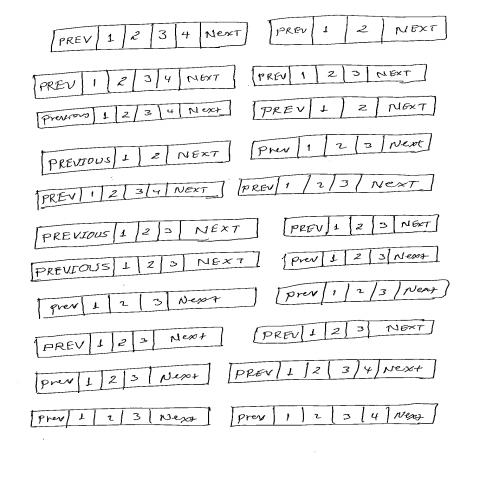 PREV 1 2 3 4 Next PREV 1 2 NEXT
PREV 1 2 3 4 NEXT PREV 1 2 3 NEXT
Previous 1 2 3 4 Next PREV 1 2 NEXT
PREVIOUS 1 2 NEXT Prev 1 2 3 Next
PREV 1 2 3 4 NEXT PREV 1 2 3 NEXT
PREVIOUS 1 2 3 NEXT PREV 1 2 3 NEXT
PREVIOUS 1 2 3 NEXT Prev 1 2 3 Next
Prev 1 2 3 Next Prev 1 2 3 Next
PREV 1 2 3 Next PREV 1 2 3 NEXT
Prev 1 2 3 Next PREV 1 2 3 4 Next
Prev 1 2 3 Next Prev 1 2 3 4 Next